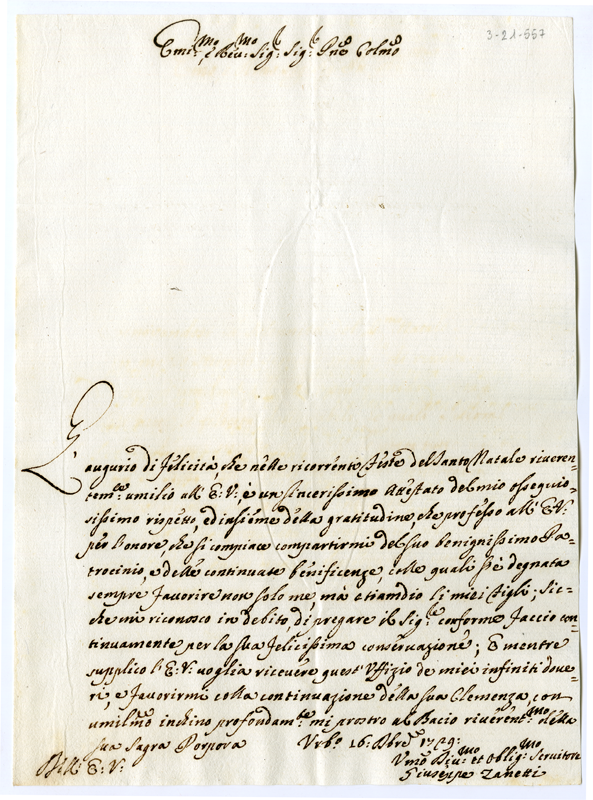 3-21-557
Em̃o: e Rev:mo Sig:r Sig:r Pnẽ Colm̃o
L'
augurio di felicità, che nelle ricorrenti Feste del Santo Natale riveren=
tem:te umilio all' E: V:, è un sincerissimo Attestato del mio ossequio=
sissimo rispetto, ed insieme della gratitudine, che professo all' E: V:
per l'onore, che si compiace compartirmi del suo benignissimo Pa=
trocinio, e delle continuate beneficenze, colle quali s'è degnata
sempre favorire non solo me, mà etiamdio li miei Figli; sic=
che mi riconosco in debito, di pregare il Sig:re conforme faccio con=
tinuamente per la sua felicissima conservazione; E mentre
supplico l' E: V: voglia ricevere quest' Uffizio de miei infiniti dove=
ri, e favorirmi colla continuazione della sua Clemenza, con
umilm̃o inchino profondam:te mi prostro al Bacio riverent:mo della
sua Sagra Porpora Urb:o 16: Xbre 1729:
Dell' E: V:
Um̃o Div:mo et Oblig:mo Servitore
Giuseppe Zanetti